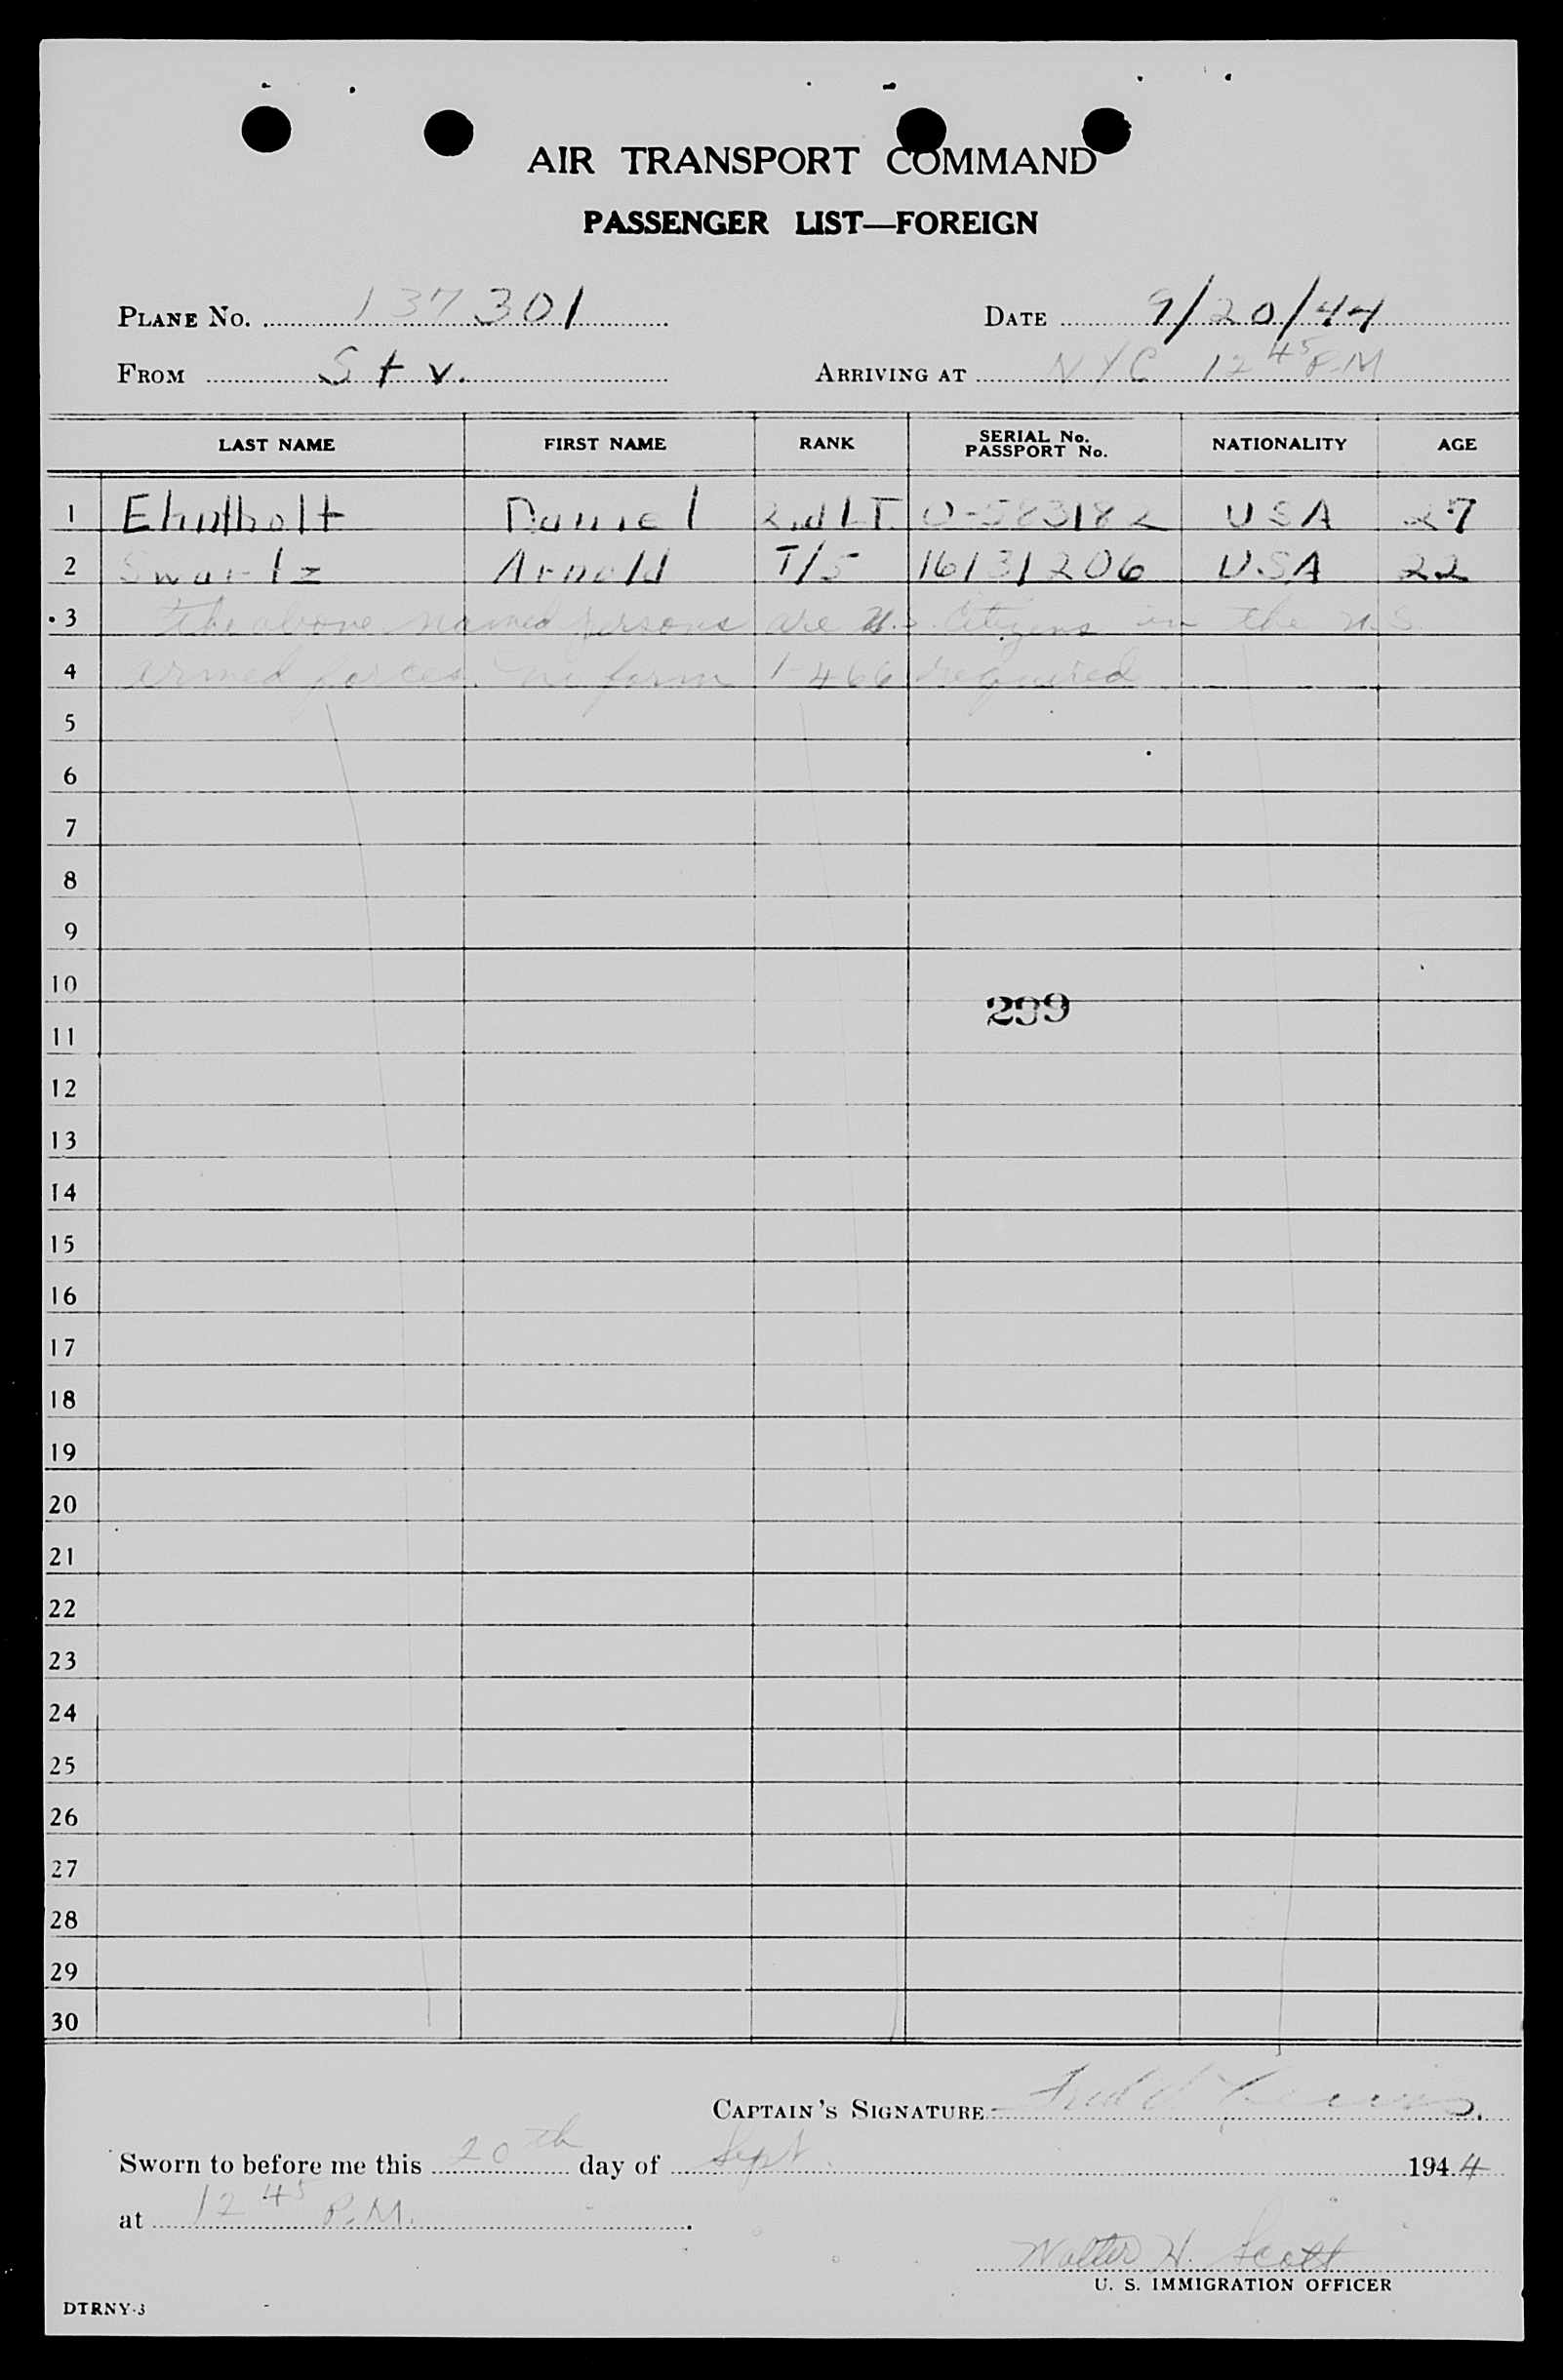 AIR TRANSPORT COMMAND
PASSENGER LIST—FOREIGN
PLANE NO. 137301 DATE 9/20/44
FROM Stv. ARRIVING AT NYC 12 45 P.M
LAST NAME FIRST NAME RANK SERIAL No. PASSPORT No. NATIONALITY AGE
1 Daniel 2nd LT. O-583182 USA 27
2 Swartz Arnold T/5 16131206 U.S.A 22
3 The above named persons are U.S. Citizens in the U.S.
4 armed forces. no form 1-466 required
5
6
7
8
9
10
299
11
12
13
14
15
16
17
18
19
20
21
22
23
24
25
26
27
28
29
30
CAPTAIN'S SIGNATURE
Sworn to before me this 20th day of Sept. 1944
at 12 45 P.M.
Walter H. Scott
U. S. IMMIGRATION OFFICER
DTRNY-3